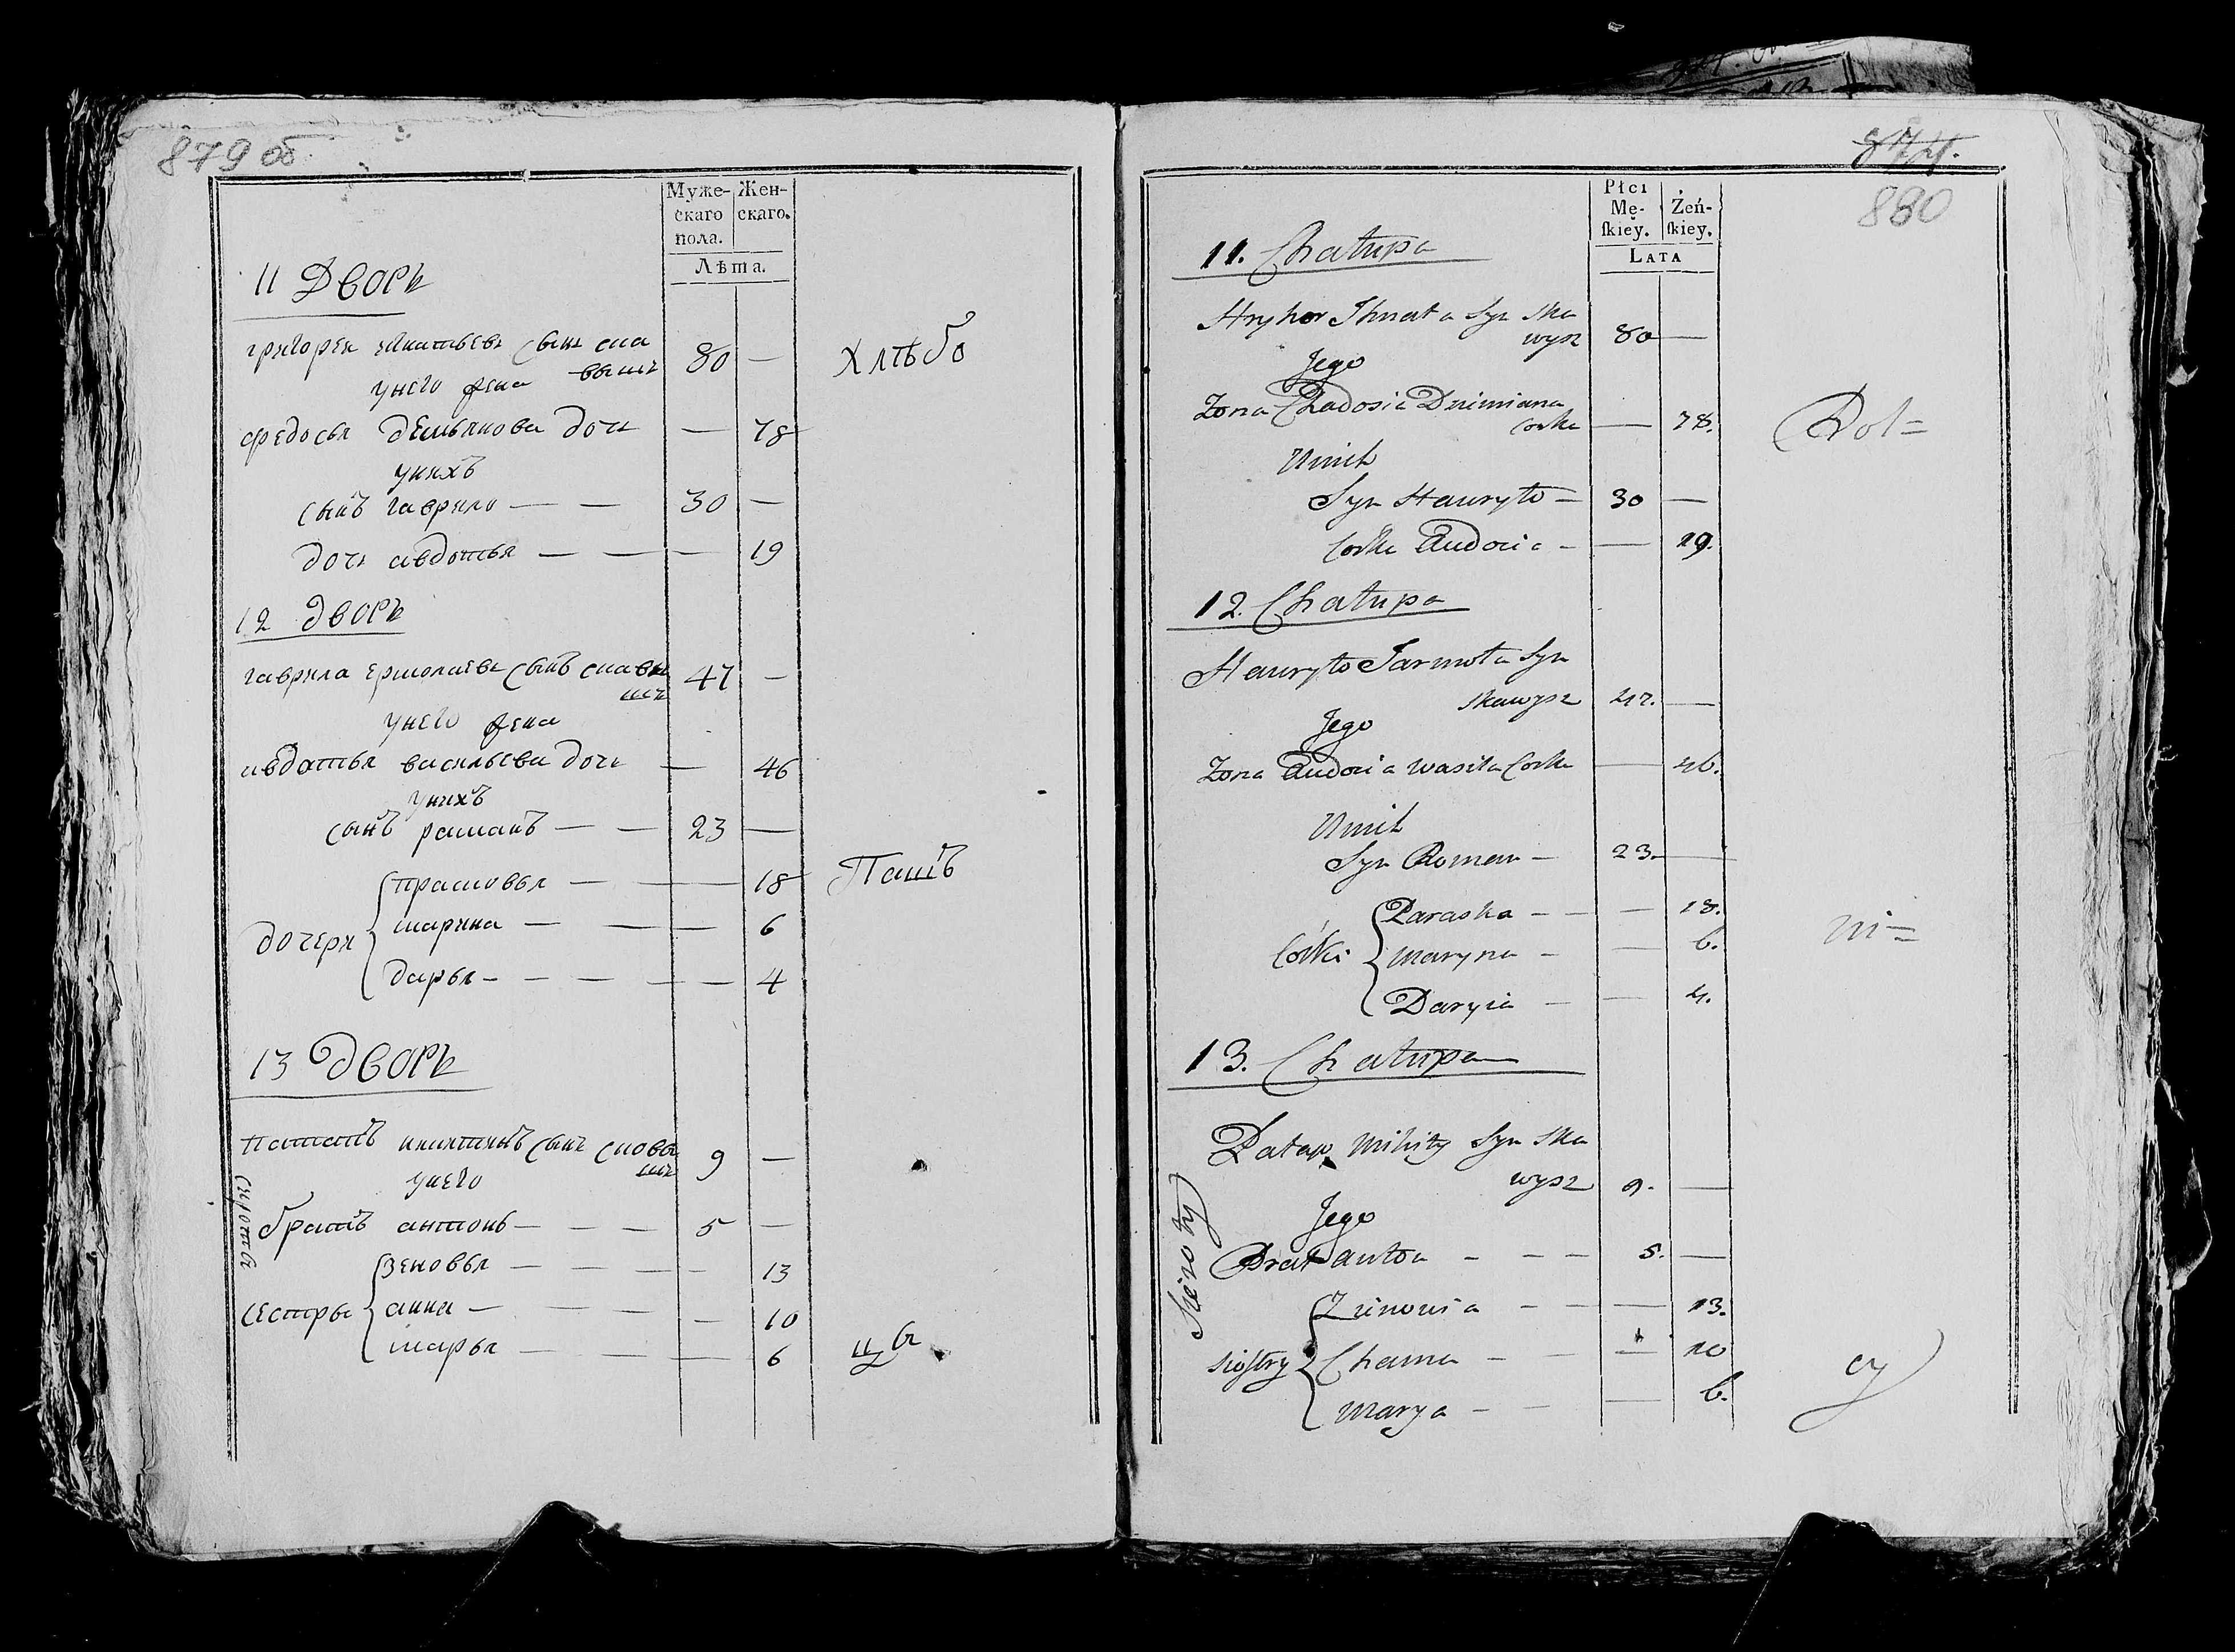 879 об
Муже-
скаго
пола.
Жен-
скаго.
Лѣта.
11 Дворъ
григорей игнатьевъ сынъ ска
вышъ 80 —
у него жена
федосья демьянова дочь — 78
у нихъ
сынъ гаврило — — 30 —
дочь авдотья — — — 19
Хлѣбо
12 дворъ
гаврила ермолаевъ сынъ скавы
шъ 47 —
у него жена
авдотья васильева дочь — 46
у нихъ
сынъ раманъ — — 23 —
дочери
прасковья — — — 18
марина — — — 6
дарья — — — — — 4
Пашъ
13 дворъ
патапъ никитинъ сынъ сковы
шъ 9 —
у него
сироты
братъ антонъ — — — 5 —
сестры
зеновья — — — — — 13
анна — — — — 10
марья — — — 6
цы
874.
880
Płci
Mę-
skiey.
Żeń-
skiey.
LATA
11. Chałupa
Hryhor Ihnata Syn Ska
wysz 80 —
Jego
Zona Chadosia Dzimiana
Corka — 78.
U nich
Syn Hauryło — 30 —
Corka Audocia — — 19.
Rol=
12. Chałupa
Hauryło Jarmoła Syn
Skawysz 47. —
Jego
Zona Audocia Wasila Corka — 46.
U nich
Syn Roman — 23. —
Córki
Paraska — — — 18.
Maryna — — 6.
Daryia — — 4.
ni=
13. Chałupa
Patap Mikity Syn Ska
wysz 9. —
Jego
Sieroty
Brat Anton — — — 5. —
Siostry
Zinowia — — — 13.
Channa — — — 10
Marya — — — 6.
cy